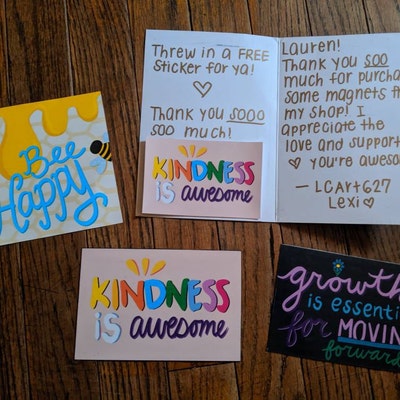 Threw in a FREE
sticker for ya!
Thank you sooo
soo much!
KINDNESS
is awesome
Lauren!
Thank you soo
much for
some magnets
my shop! I
appreciate the
love and support
you're awesome
— LCArt627
Lexi
Bee
Happy
KINDNESS
is awesome
growth
is
for MOVING
forward